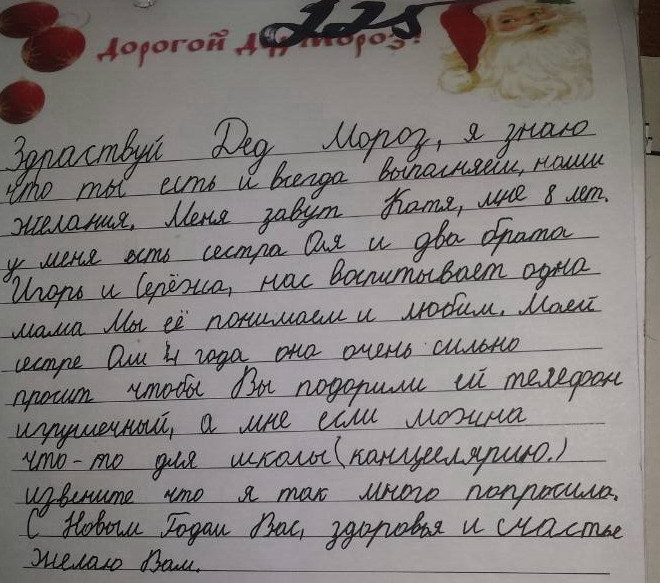 225
Дорогой Дед Мороз!
Здраствуй Дед Мороз, я знаю
что ты есть и всегда выпасняеш, наши
желания. Меня завут Катя, мне 8 лет.
у меня есть сестра Оля и два брата
Игорь и Серёжа, нас воспитывает одна
мама Мы её понимаем и любим. Маей
сестре Оли 4 года она очень сильно
просит чтобы Вы подорили ей телефон
игрушечный, а мне если можна
что-то для школы (канцеелярию.)
извените что я так много попросила.
С Новым Годам Вас, здоровья и счастье
желаю Вам.